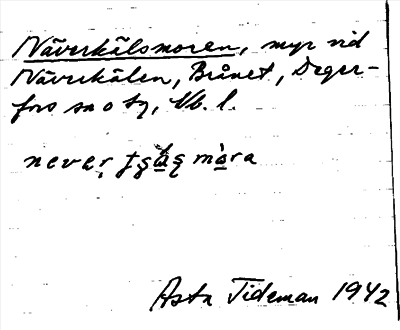 Näverkälsmoren, myr vid
Näverkälen, Brånet, Deger-
fors sn o tg, Vb. l.
never
Asta Tideman 1942